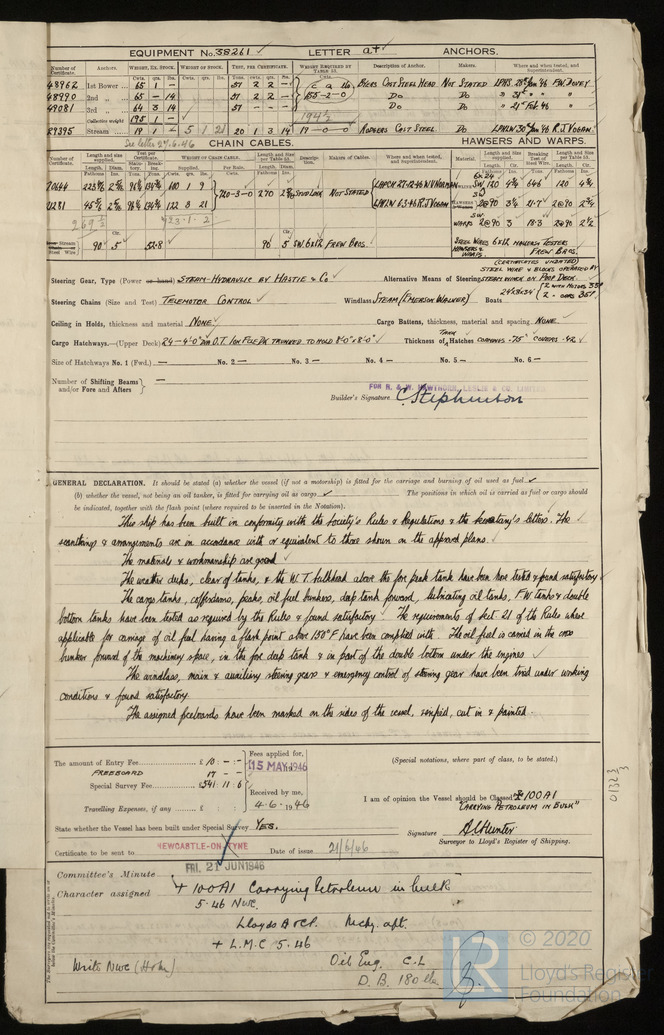 EQUIPMENT No. 38261 LETTER at ANCHORS.
Number of Certificate. Anchors. WEIGHT, EX. STOCK. WEIGHT OF STOCK. TEST, PER CERTIFICATE. WEIGHT REQUIRED BY TABLE 53. Description of Anchor. Makers. Where and when tested, and Superintendent.
48962 1st Bower 65 1 - 57 2 2 - Byers Cast Steel Head Not Stated F.W. Dovey
48990 2nd 65 - 14 57 2 2 - 185-2-0 Do Do
49081 3rd 64 3 14 57 - - - Do Do 21st Feb 46
Collective weight 195 1 - 194 1/2
29395 Stream 19 1 - 5 1 21 20 1 3 14 19-0-0 Rodgers Cast Steel Do 30 Jan 46 R.J. Vogan
See letter 27.6.46
CHAIN CABLES. HAWSERS AND WARPS.
Number of Certificate. Length and size supplied. Test per Certificate. WEIGHT OF CHAIN CABLE. Length and Size per Table 53. Description. Makers of Cables. Where and when tested, and Superintendent. Material. Length and size supplied. Breaking Test of Steel Wire. Length and Size per Table 53.
Supplied. Per Rule.
600 1 9 720-3-0 270 Stud Link Not Stated 120 646 120
122 3 21 6.3.46 R.J. Vogan 2@90 21.7 2@90
269 1/2 723-1-2 WARPS 2@90 3 18.3 2@90 2 1/2
Stream or Steel Wire 90 5 52.8 90 5 SW 6x12 Frew Bros. STEEL WIRES HAWSERS & WARPS 6x12 MAKERS & TESTERS FREW BROS.
(CERTIFICATES UNDATED)
Steering Gear, Type (Power or hand) STEAM-HYDRAULIC BY HASTIE & Co Alternative Means of Steering STEEL WIRE & BLOCKS OPERATED BY STEAM WINCH ON POOP DECK.
Steering Chains (Size and Test) TELEMOTOR CONTROL Windlass STEAM (EMERSON WALKER) Boats
Ceiling in Holds, thickness and material NONE Cargo Battens, thickness, material and spacing NONE
Cargo Hatchways.—(Upper Deck) 24-4'0" DIA O.T. TRUNKED TO HOLD 8'0"x8'0" Thickness of TANK Hatches COAMINGS .75" COVERS .42
Size of Hatchways No. 1 (Fwd.) — No. 2— No. 3— No. 4— No. 5— No. 6—
Number of Shifting Beams and/or Fore and Afters —
FOR R. & W. HAWTHORN, LESLIE & CO. LIMITED
Builder's Signature C Stephenson
GENERAL DECLARATION. It should be stated (a) whether the vessel (if not a motorship) is fitted for the carriage and burning of oil used as fuel
(b) whether the vessel, not being an oil tanker, is fitted for carrying oil as cargo The positions in which oil is carried as fuel or cargo should
be indicated, together with the flash point (where required to be inserted in the Notation).
This ship has been built in conformity with the Society's Rules & Regulations & the Secretary's letters. The
scantlings & arrangements are in accordance with or equivalent to those shown on the approved plans.
The materials & workmanship are good
The weather decks, clear of tanks, & the W.T. bulkhead above the fore peak tank have been hose tested & found satisfactory
The cargo tanks, cofferdams, peaks, oil fuel bunkers, deep tank forward, lubricating oil tanks, F.W. tanks & double
bottom tanks have been tested as required by the Rules & found satisfactory. The requirements of Sect. 21 of the Rules where
applicable for carriage of oil fuel having a flash point above 150°F have been complied with. The oil fuel is carried in the cross
bunker forward of the machinery space, in the fore deep tank & in part of the double bottom under the engines
The windlass, main & auxiliary steering gears & emergency control of steering gear have been tried under working
conditions & found satisfactory.
The assigned freeboards have been marked on the sides of the vessel, verified, cut in & painted.
The amount of Entry Fee £ 10 : - : -
FREEBOARD 17 - -
Special Survey Fee £541 : 11 : 6
Travelling Expenses, if any £
Fees applied for,
15 MAY 1946
Received by me,
4.6.1946
(Special notations, where part of class, to be stated.)
I am of opinion the Vessel should be Classed +100A1
"CARRYING PETROLEUM IN BULK"
State whether the Vessel has been built under Special Survey YES.
Signature A L Hunter
Surveyor to Lloyd's Register of Shipping.
Certificate to be sent to NEWCASTLE-ON-TYNE Date of issue 21/6/46
FRI. 21 JUN 1946
Committee's Minute
Character assigned + 100A1 Carrying Petroleum in bulk
5.46 Nwc.
Lloyds A & CP. Mchy. aft.
+ L.M.C 5.46
Write Nwc Oil Eng. C.L
D.B. 180 lb
© 2020
LR
Lloyd's Register
Foundation